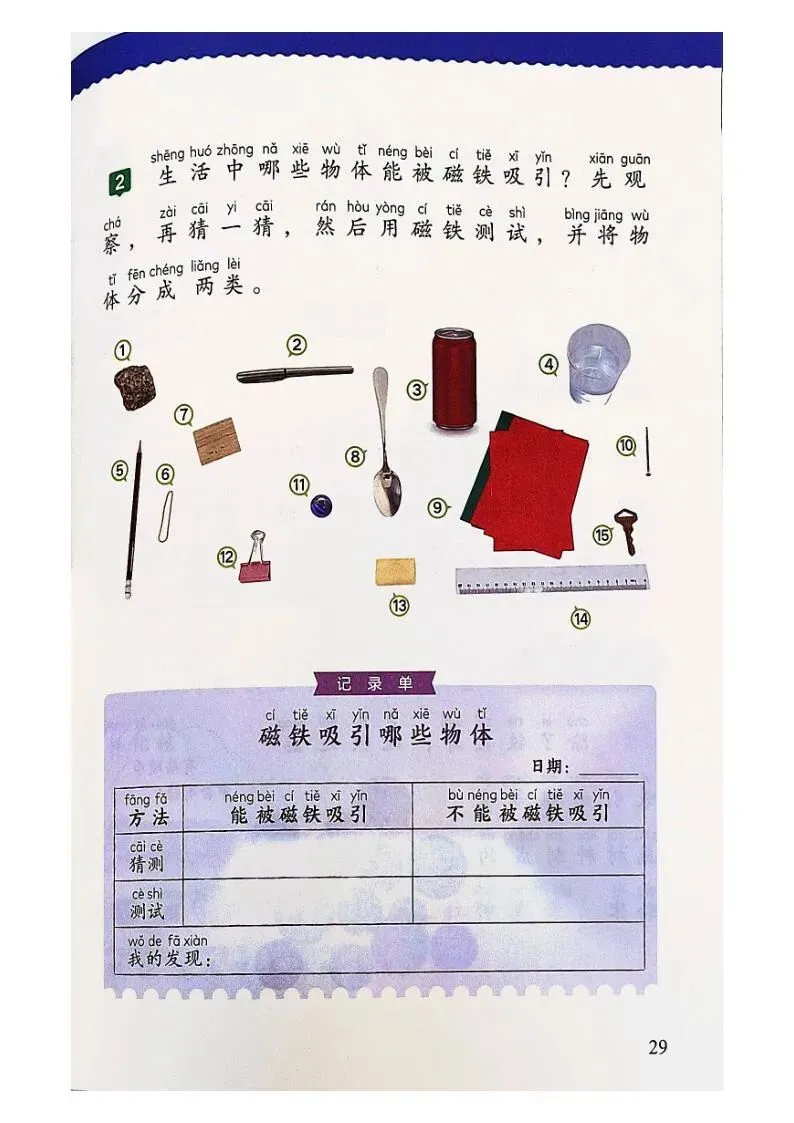 shēng huó zhōng nǎ xiē wù tǐ néng bèi cí tiě xī yǐn xiān guān
2 生活中哪些物体能被磁铁吸引？先观
chá zài cāi yi cāi rán hòu yòng cí tiě cè shì bìng jiāng wù
察，再猜一猜，然后用磁铁测试，并将物
tǐ fēn chéng liǎng lèi
体分成 两类。
① ② ③ ④
⑦
⑤ ⑥ ⑧ ⑩
⑪ ⑨ ⑮
⑫
⑬ ⑭
记录单
cí tiě xī yǐn nǎ xiē wù tǐ
磁铁吸引哪些物体
日期：
fāng fǎ néng bèi cí tiě xī yǐn bù néng bèi cí tiě xī yǐn
方法 能被磁铁吸引 不能被磁铁吸引
cāi cè
猜测
cè shì
测试
wǒ de fā xiàn
我的发现：
29